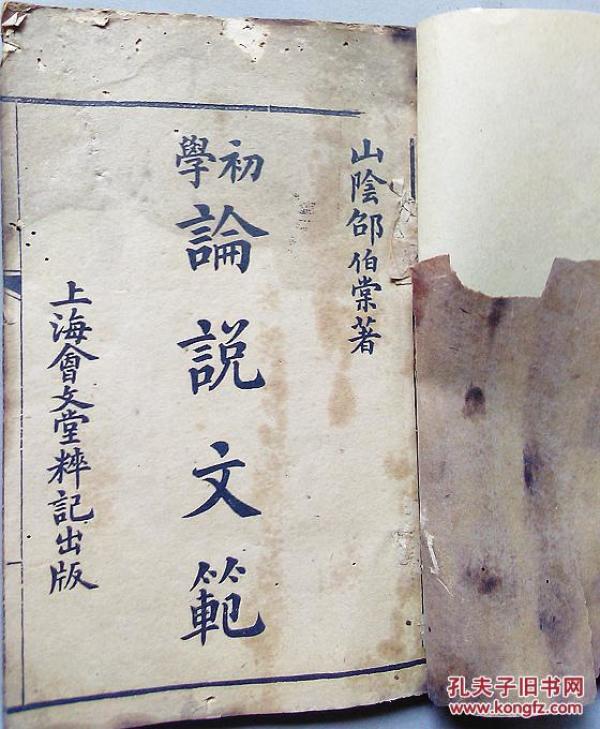 山陰邵伯棠著
初學
論説文範
上海會文堂粹記出版
孔夫子旧书网
www.kongfz.com